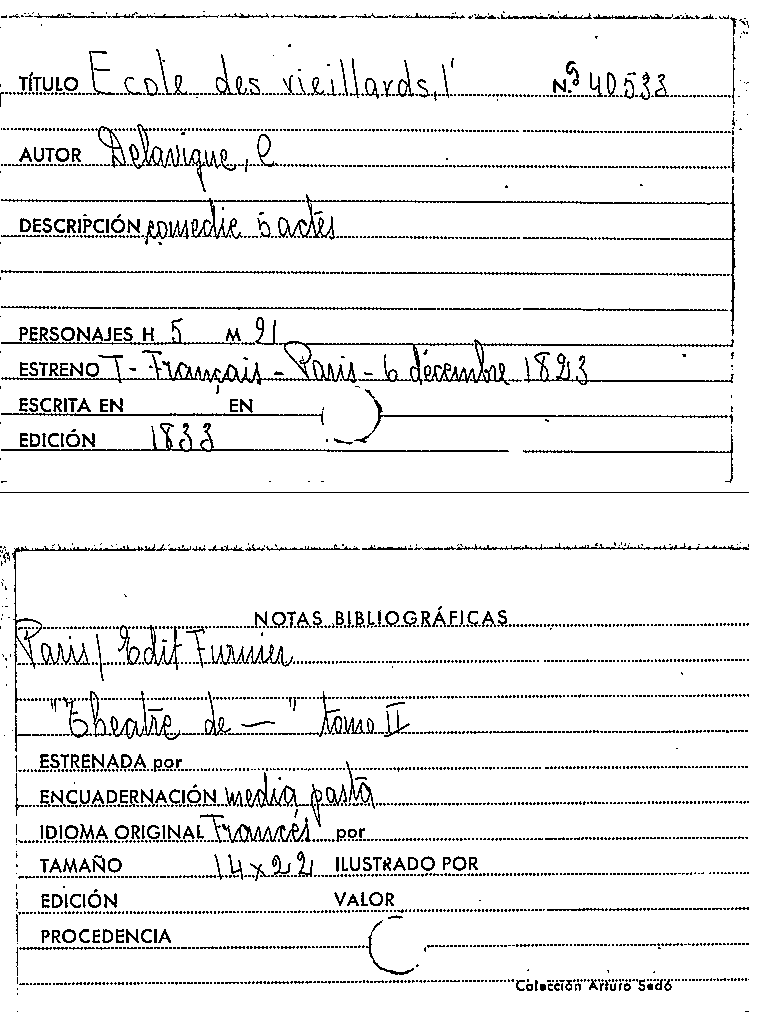 TÍTULO Ecole des vieillards, l' N.º 40533
AUTOR Delavigne, C
DESCRIPCIÓN comedie 5 actes
PERSONAJES H 5 M
ESTRENO T- Français - Paris - 6 décembre 1823
ESCRITA EN EN
EDICIÓN 1833
NOTAS BIBLIOGRÁFICAS
Paris / Edit Furnier
"Theatre de — " tomo II
ESTRENADA por
ENCUADERNACIÓN media pasta
IDIOMA ORIGINAL Francés por
TAMAÑO 14 x 22 ILUSTRADO POR
EDICIÓN VALOR
PROCEDENCIA
Colección Arturo Sedó